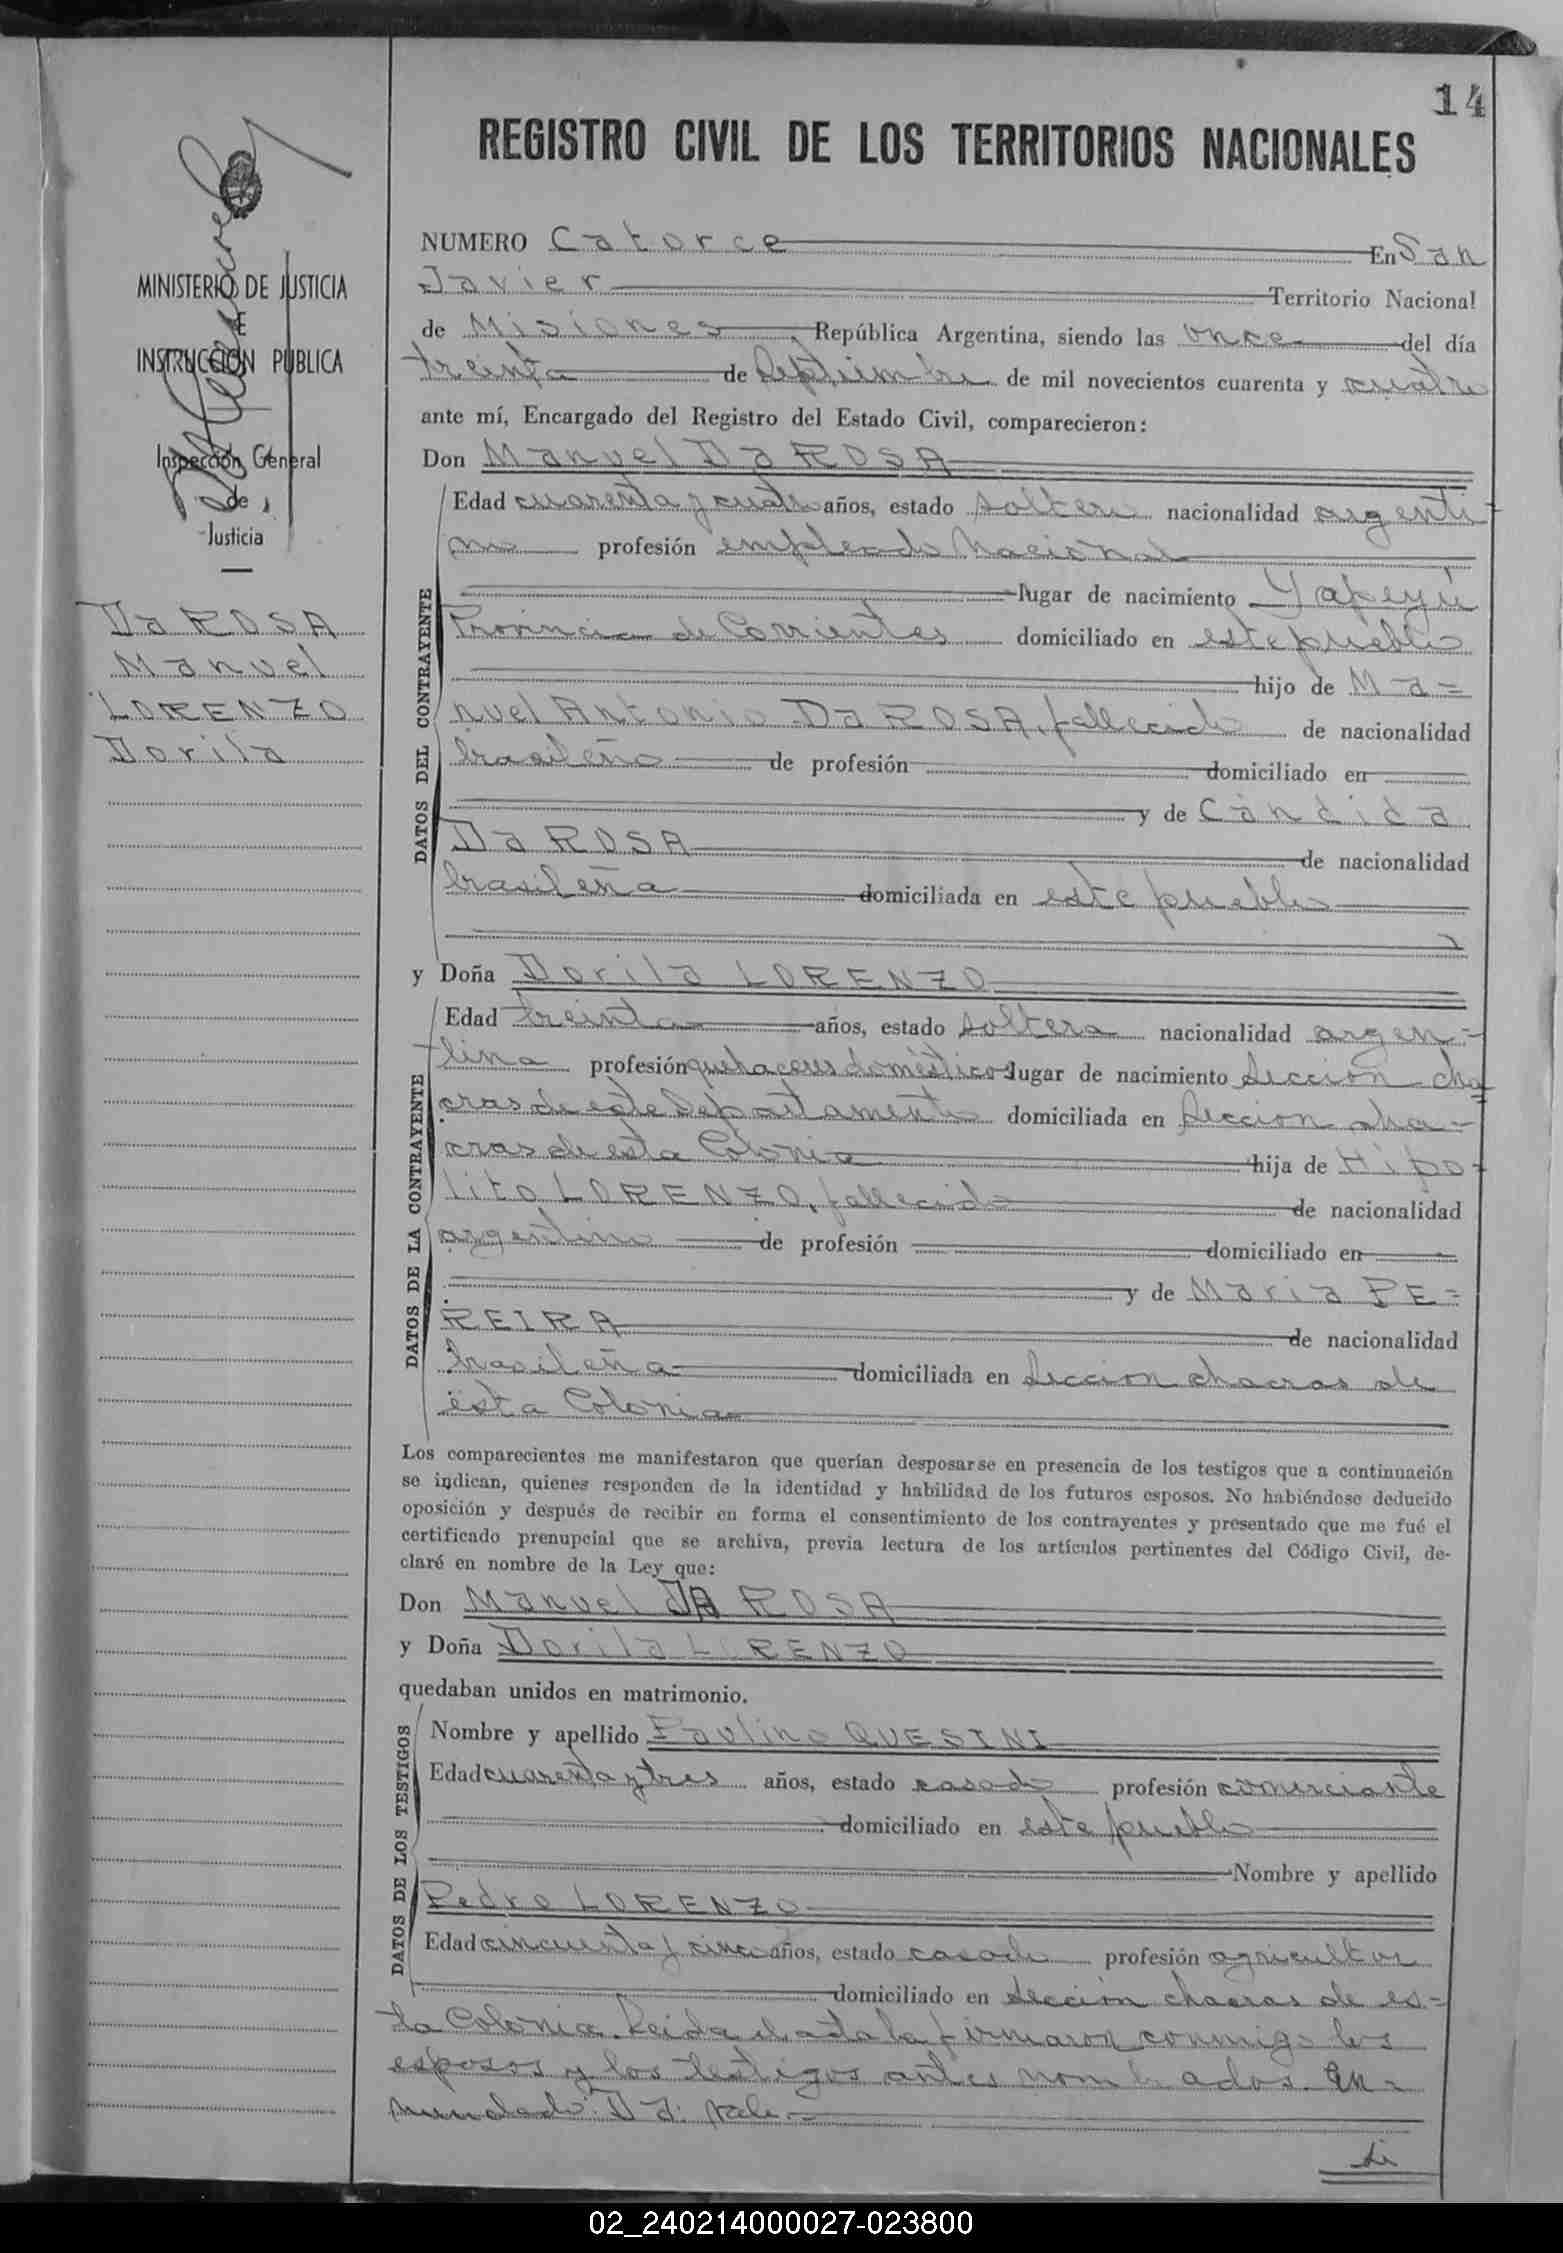 14
REGISTRO CIVIL DE LOS TERRITORIOS NACIONALES
MINISTERIO DE JUSTICIA
E
INSTRUCCIÓN PÚBLICA
Inspección General
de
Justicia
Da ROSA
Manuel
LORENZO
Dorila
NUMERO Catorce En San
Javier Territorio Nacional
de Misiones República Argentina, siendo las once del día
treinta de Septiembre de mil novecientos cuarenta y cuatro
ante mí, Encargado del Registro del Estado Civil, comparecieron:
Don Manuel Da ROSA
DATOS DEL CONTRAYENTE
Edad cuarenta y cuatro años, estado soltero nacionalidad argenti-
no profesión empleado Nacional
lugar de nacimiento Yapeyú
Provincia de Corrientes domiciliado en este pueblo
hijo de Ma=
nuel Antonio Da ROSA, fallecido de nacionalidad
brasileño de profesión domiciliado en
y de Cándida
Da ROSA de nacionalidad
brasileña domiciliada en este pueblo
y Doña Dorila LORENZO
DATOS DE LA CONTRAYENTE
Edad treinta años, estado soltera nacionalidad argen=
tina profesión quehaceres domésticos lugar de nacimiento Sección cha
cras de este Departamento domiciliada en Sección cha=
cras de esta Colonia hija de Hipo-
lito LORENZO, fallecido de nacionalidad
argentino de profesión domiciliado en
y de Maria PE=
REIRA de nacionalidad
brasileña domiciliada en Sección chacras de
esta Colonia
Los comparecientes me manifestaron que querían desposarse en presencia de los testigos que a continuación
se indican, quienes responden de la identidad y habilidad de los futuros esposos. No habiéndose deducido
oposición y después de recibir en forma el consentimiento de los contrayentes y presentado que me fué el
certificado prenupcial que se archiva, previa lectura de los artículos pertinentes del Código Civil, de-
claré en nombre de la Ley que:
Don Manuel DA ROSA
y Doña Dorila LORENZO
quedaban unidos en matrimonio.
DATOS DE LOS TESTIGOS
Nombre y apellido Paulino QUESINI
Edad cuarenta y tres años, estado casado profesión comerciante
domiciliado en este pueblo
Nombre y apellido
Pedro LORENZO
Edad cincuenta y cinco años, estado casado profesión agricultor
domiciliado en Sección chacras de es=
ta Colonia. Leida el acta la firmaron conmigo los
esposos y los testigos antes nombrados. En=
mendado: Da: vale.=
02_240214000027-023800